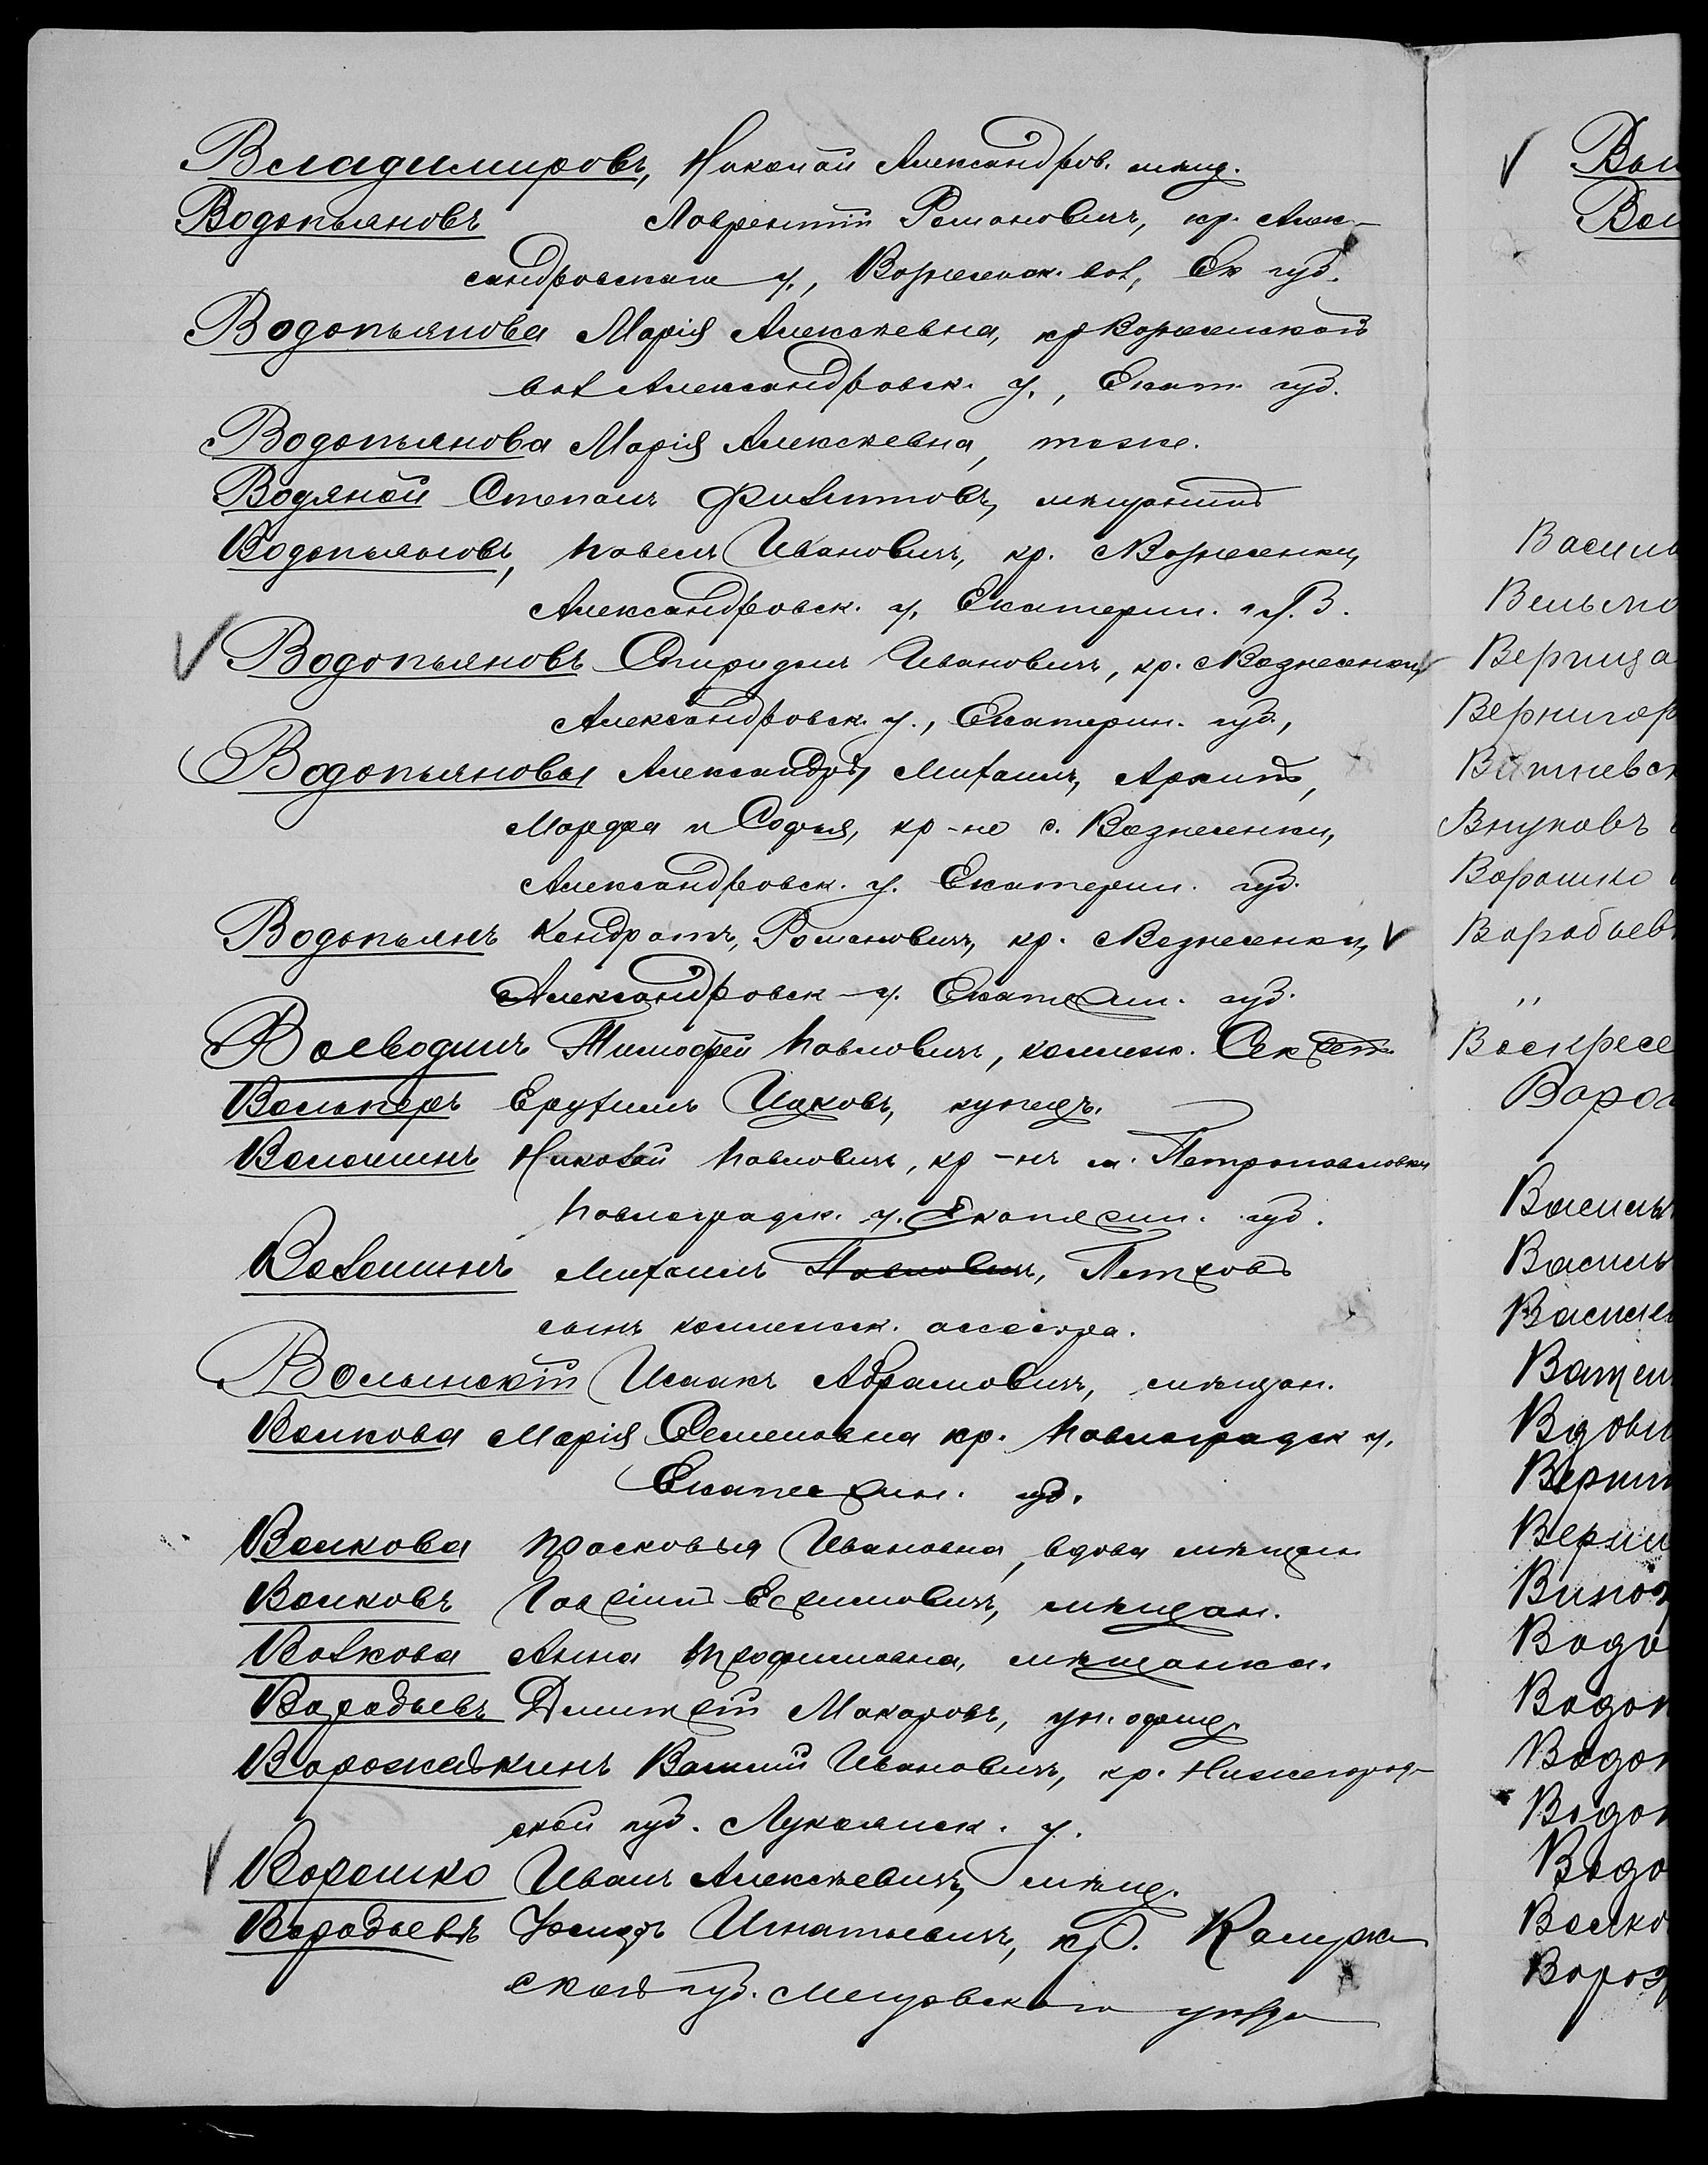 Владимировъ, Николай Александров. мѣщ.
Водопьяновъ Лаврентій Романовичъ, кр. Алек-
сандровскаго у., Вознесенск. вол, Ек губ.
Водопьянова Марія Алексѣевна, кр Вознесенской
вол Александровск. у., Екат. губ.
Водопьянова Марія Алексѣевна, тоже.
Водяной Степанъ Филиповъ, мѣщанинъ
Водопьяновъ, Павелъ Ивановичъ, кр. с Вознесенки,
Александровск. у. Екатерин. губ.
Водопьяновъ Спиридонъ Ивановичъ, кр. с Вознесенки,
Александровск. у., Екатерин. губ.,
Водопьяновы Александръ, Михаилъ, Архипъ,
Марфа и Софья, кр-не с. Вознесенки,
Александровск. у. Екатерин. губ.
Водопьянъ Кондратъ, Романовичъ, кр. с Вознесенки,
Александровск у. Екатерин. губ.
Воеводинъ Тимофей Павловичъ, коллеж. Секрет.
Ерухимъ Ицковъ, купецъ.
Волошинъ Николай Павловичъ, кр-нъ м. Петропавловки
Павлоградск. у. Екатерин. губ.
Волошинъ Михаилъ Павловичъ, Петровъ
сынъ коллежск. ассесора.
Волынскій Исаакъ Абрамовичъ, мѣщан.
Волкова Марія Семеновна кр. Павлоградск у.
Екатерин. губ.
Волкова Прасковья Ивановна, вдова мѣщан
Волковъ Гавріилъ Ефимовичъ, мѣщан.
Волкова Анна Трофимовна, мѣщанка.
Воробьевъ Дмитрій Макаровъ, ун. офиц.
Ворожейкинъ Василій Ивановичъ, кр. Нижегород-
ской губ. Лукоянск. у.
Ворошко Иванъ Алексѣевичъ, мѣщ.
Воробьевъ Игнатьевичъ, кр. Калужс
ской губ. Мещовскаго уѣзда
Васил
Вельмо
Верниго
Внуковъ
Ворошко
Воробьев
"
Воскресе
Василь
Василь
Водо
Водоп
Водоп
Водоп
Водо
Волко